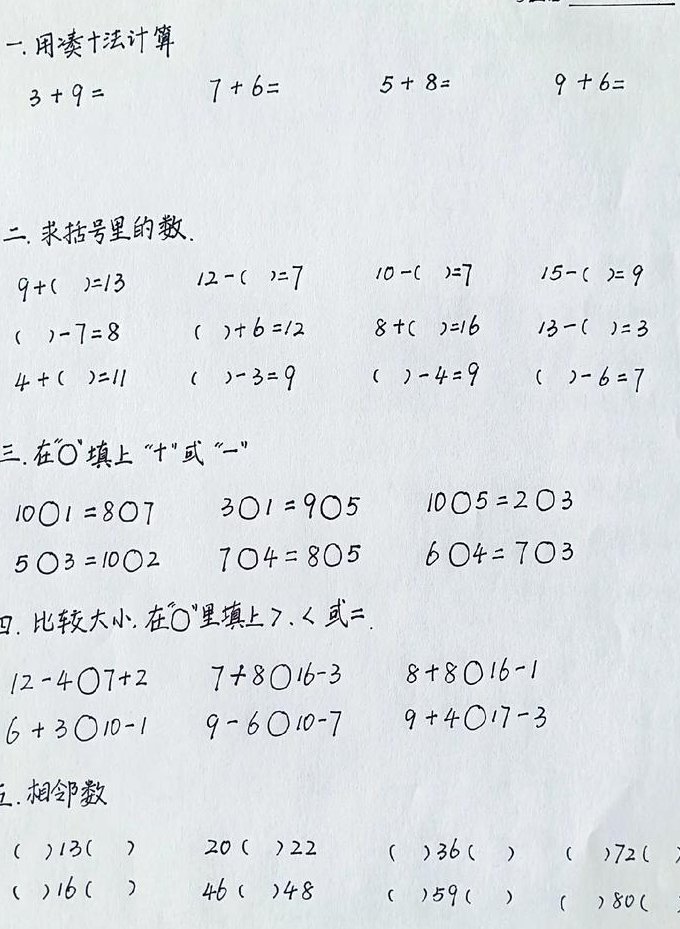 一.用凑十法计算
3+9= 7+6= 5+8= 9+6=
二.求括号里的数.
9+( )=13 12-( )=7 10-( )=7 15-( )=9
( )-7=8 ( )+6=12 8+( )=16 13-( )=3
4+( )=11 ( )-3=9 ( )-4=9 ( )-6=7
三.在"○"填上 "+"或 "-"
10○1=8○7 3○1=9○5 10○5=2○3
5○3=10○2 7○4=8○5 6○4=7○3
四.比较大小.在"○"里填上>.<或=.
12-4○7+2 7+8○16-3 8+8○16-1
6+3○10-1 9-6○10-7 9+4○17-3
五.相邻数
( )13( ) 20( )22 ( )36( ) ( )72( )
( )16( ) 46( )48 ( )59( ) ( )80(